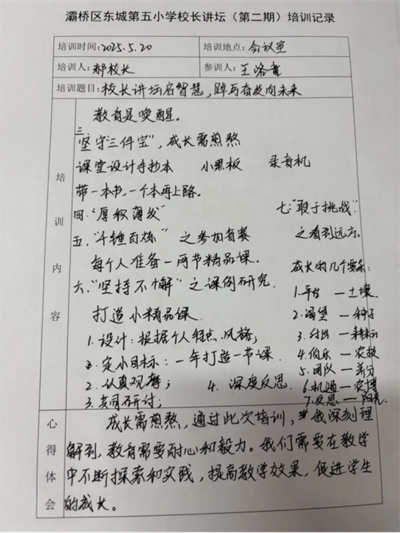 灞桥区东城第五小学校长讲坛（第二期）培训记录
培训时间: 2025.5.20 培训地点: 会议室
培训人: 郝校长 参训人:
培训题目: 校长讲坛启智慧，踔厉奋发向未来
培训内容
教育是唤醒。
三、
坚守"三件宝"，成长需煎熬
课堂设计手抄本 小黑板 录音机
带一本书，一个本再上路。
四."厚积薄发" 七"敢于挑战"
五."千锤百炼"之参加赛 之看到远方。
每个人准备一两节精品课. 成长的几个要素:
六."坚持不懈"之课例研究 1.平台 — 土壤
打造小精品课. 2. — 种子
1.设计: 根据个人特点、风格; 3.付出 —
定小目标: 一年打造一节课 4.伯乐 —
2.认真观摩; 4. 深度反思. 5.团队 — 养分
3.共同研讨; 6.机遇 —
7.反思 —
心得体会
成长需煎熬，通过此次培训，我深刻理
解到，教育需要耐心和毅力。我们需要在教学
中不断探索和实践，提高教学效果，促进学生
的成长。